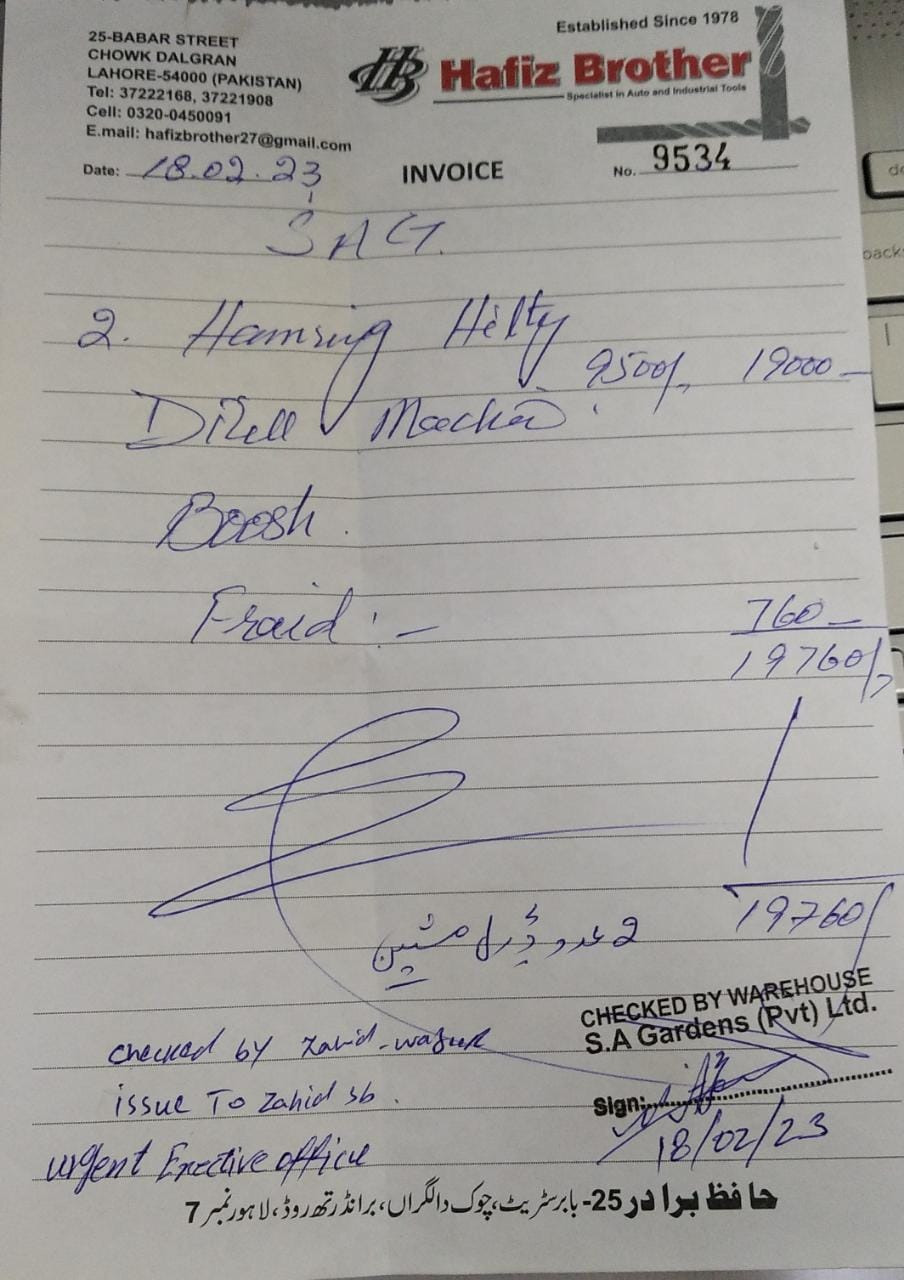 25-BABAR STREET
CHOWK DALGRAN
LAHORE-54000 (PAKISTAN)
Tel: 37222168, 37221908
Cell: 0320-0450091
E.mail: hafizbrother27@gmail.com
Established Since 1978
HB Hafiz Brother
Specialist in Auto and Industrial Tools
Date: 18.02.23 INVOICE No. 9534
SAG.
2. Hamring Hilty
9500/- 19000-
Drell Machin
Boosh.
Fraid :- 760-
19760/-
19760/
2 عدد ڈرل مشین
CHECKED BY WAREHOUSE
S.A Gardens (Pvt) Ltd.
checked by Zahid-
issue To Zahid sb.
Sign:
18/02/23
urgent Exective office
حافظ برادر 25- بابر سٹریٹ، چوک دالگراں، برانڈرتھ روڈ، لاہور نمبر 7